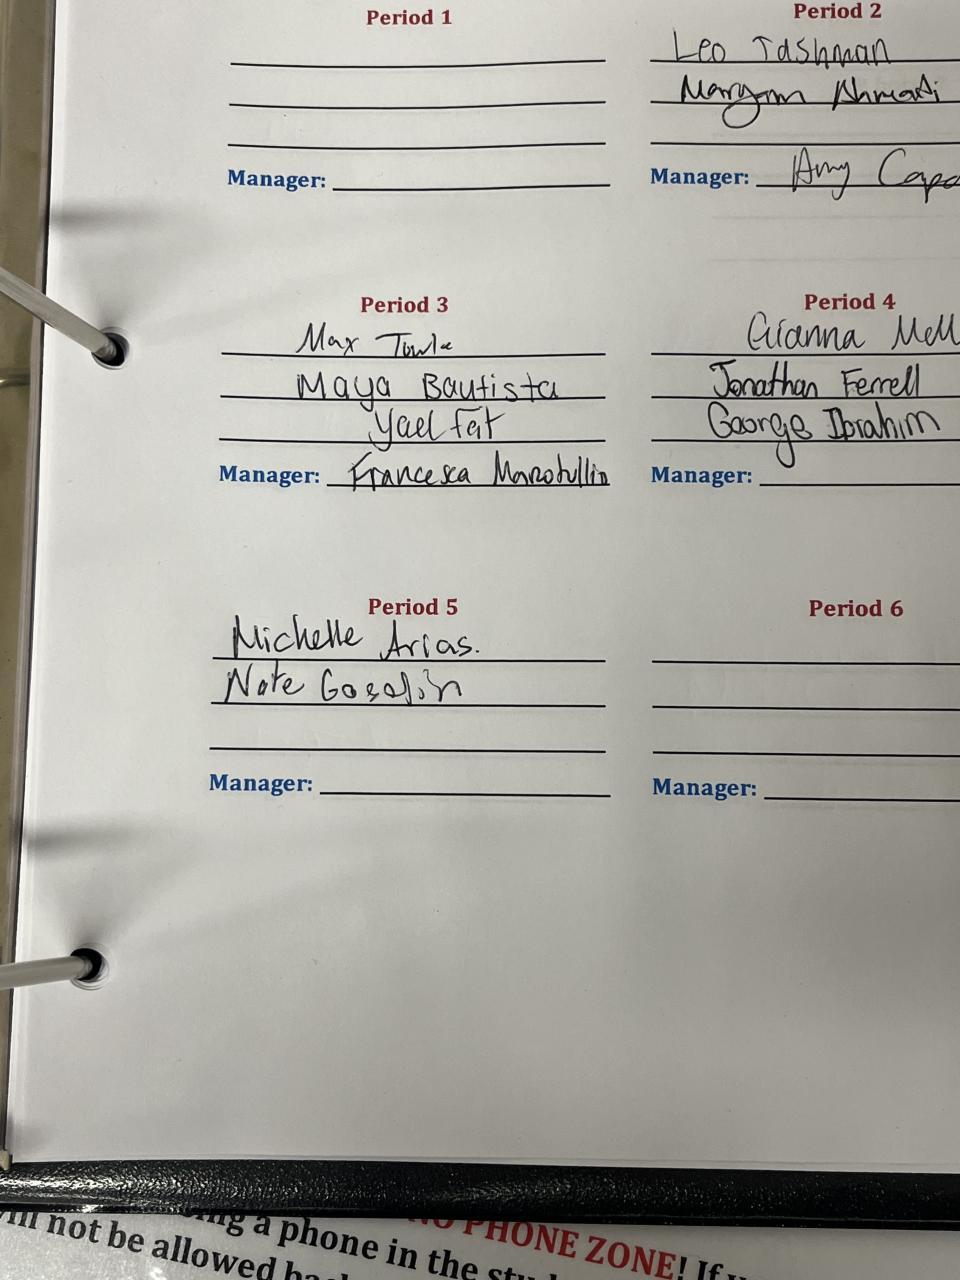 Period 1
Manager:
Period 2
Leo Tashman
Maryam Ahmadi
Manager: Amy Capo
Period 3
Max Towle
Maya Bautista
Yael Feit
Manager: Francesca Marotullio
Period 4
Gianna Mell
Jonathan Ferrell
George Ibrahim
Manager:
Period 5
Michelle Arias.
Nate
Manager:
Period 6
Manager:
NO PHONE ZONE! If
ing a phone in the
will not be allowed